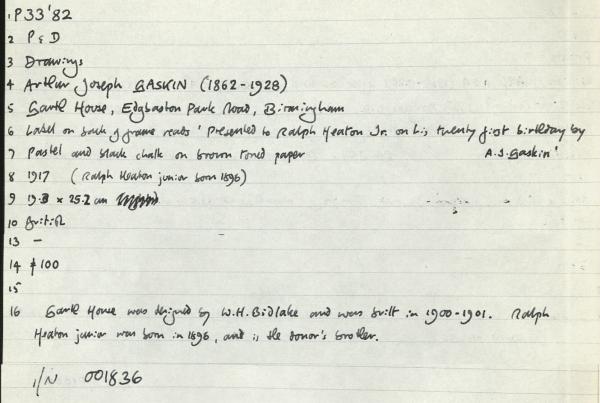 1 P33'82
2 P & D
3 Drawings
4 Arthur Joseph GASKIN (1862-1928)
5 Garth House, Edgbaston Park Road, Birmingham
6 Label on back of frame reads 'Presented to Ralph Heaton Jr. on his twenty first birthday by
A.J. Gaskin'
7 Pastel and black chalk on brown toned paper
8 1917 (Ralph Heaton junior born 1896)
9 19.3 x 25.2 cm
10 British
13 -
14 £100
15
16 Garth House was designed by W.H. Bidlake and was built in 1900-1901. Ralph
Heaton junior was born in 1896, and is the donor's brother.
i/N 001836